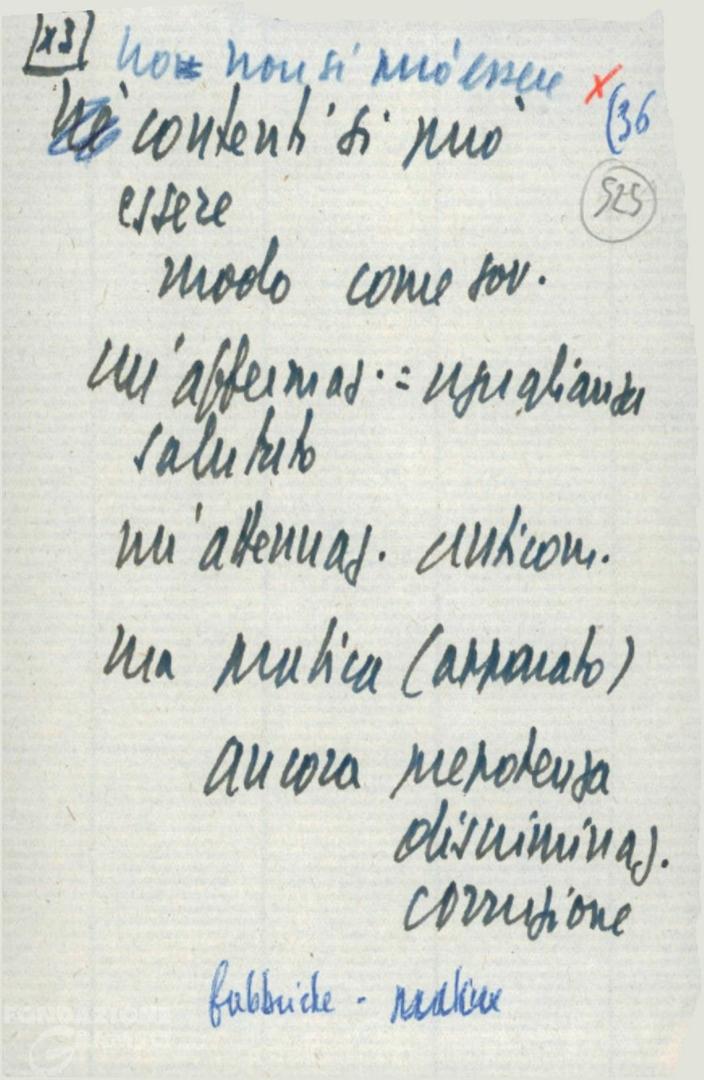 [x3] non si può essere x
contenti si può (36
essere 525
modo come gov.
un'affermaz. = uguaglianza
salutato
un'attenuaz. anticom.
ma pratica (apparato)
ancora prepotenza
discriminaz.
corruzione
fabbriche - pratica
FONDAZIONE